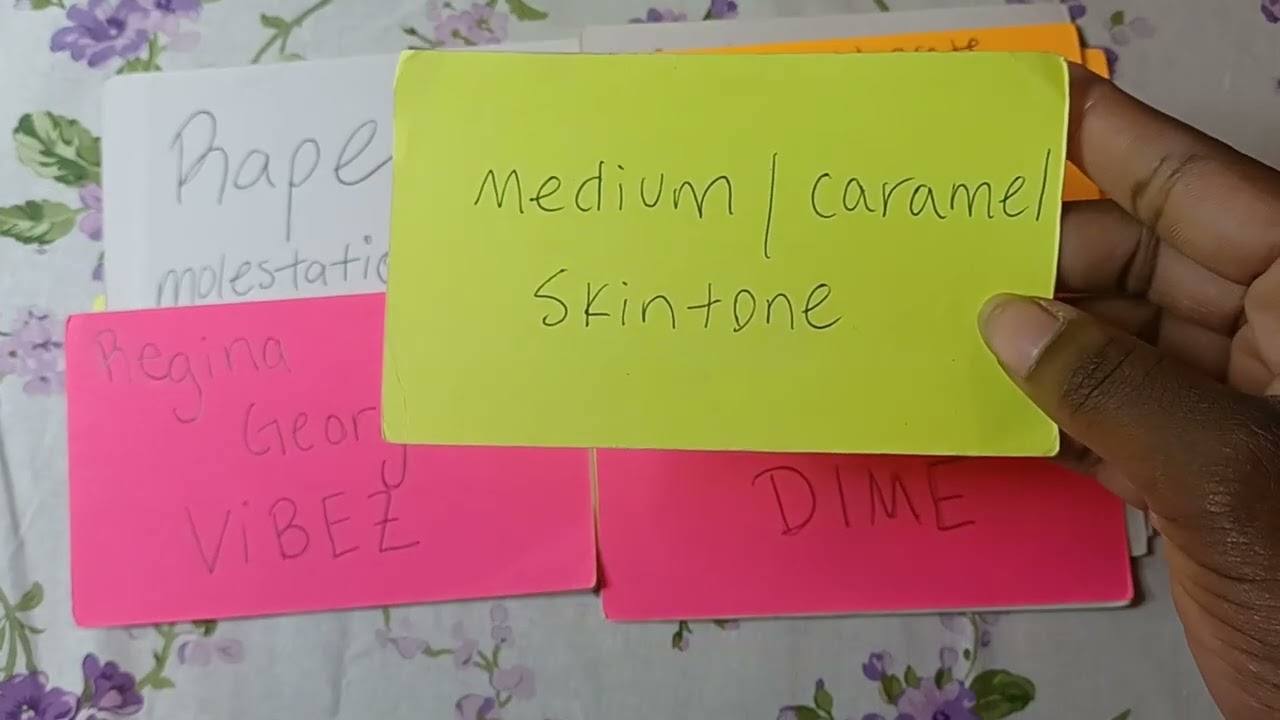 Rape
molestatio
medium / caramel
skintone
Regina
Georg
ViBEZ
DIME